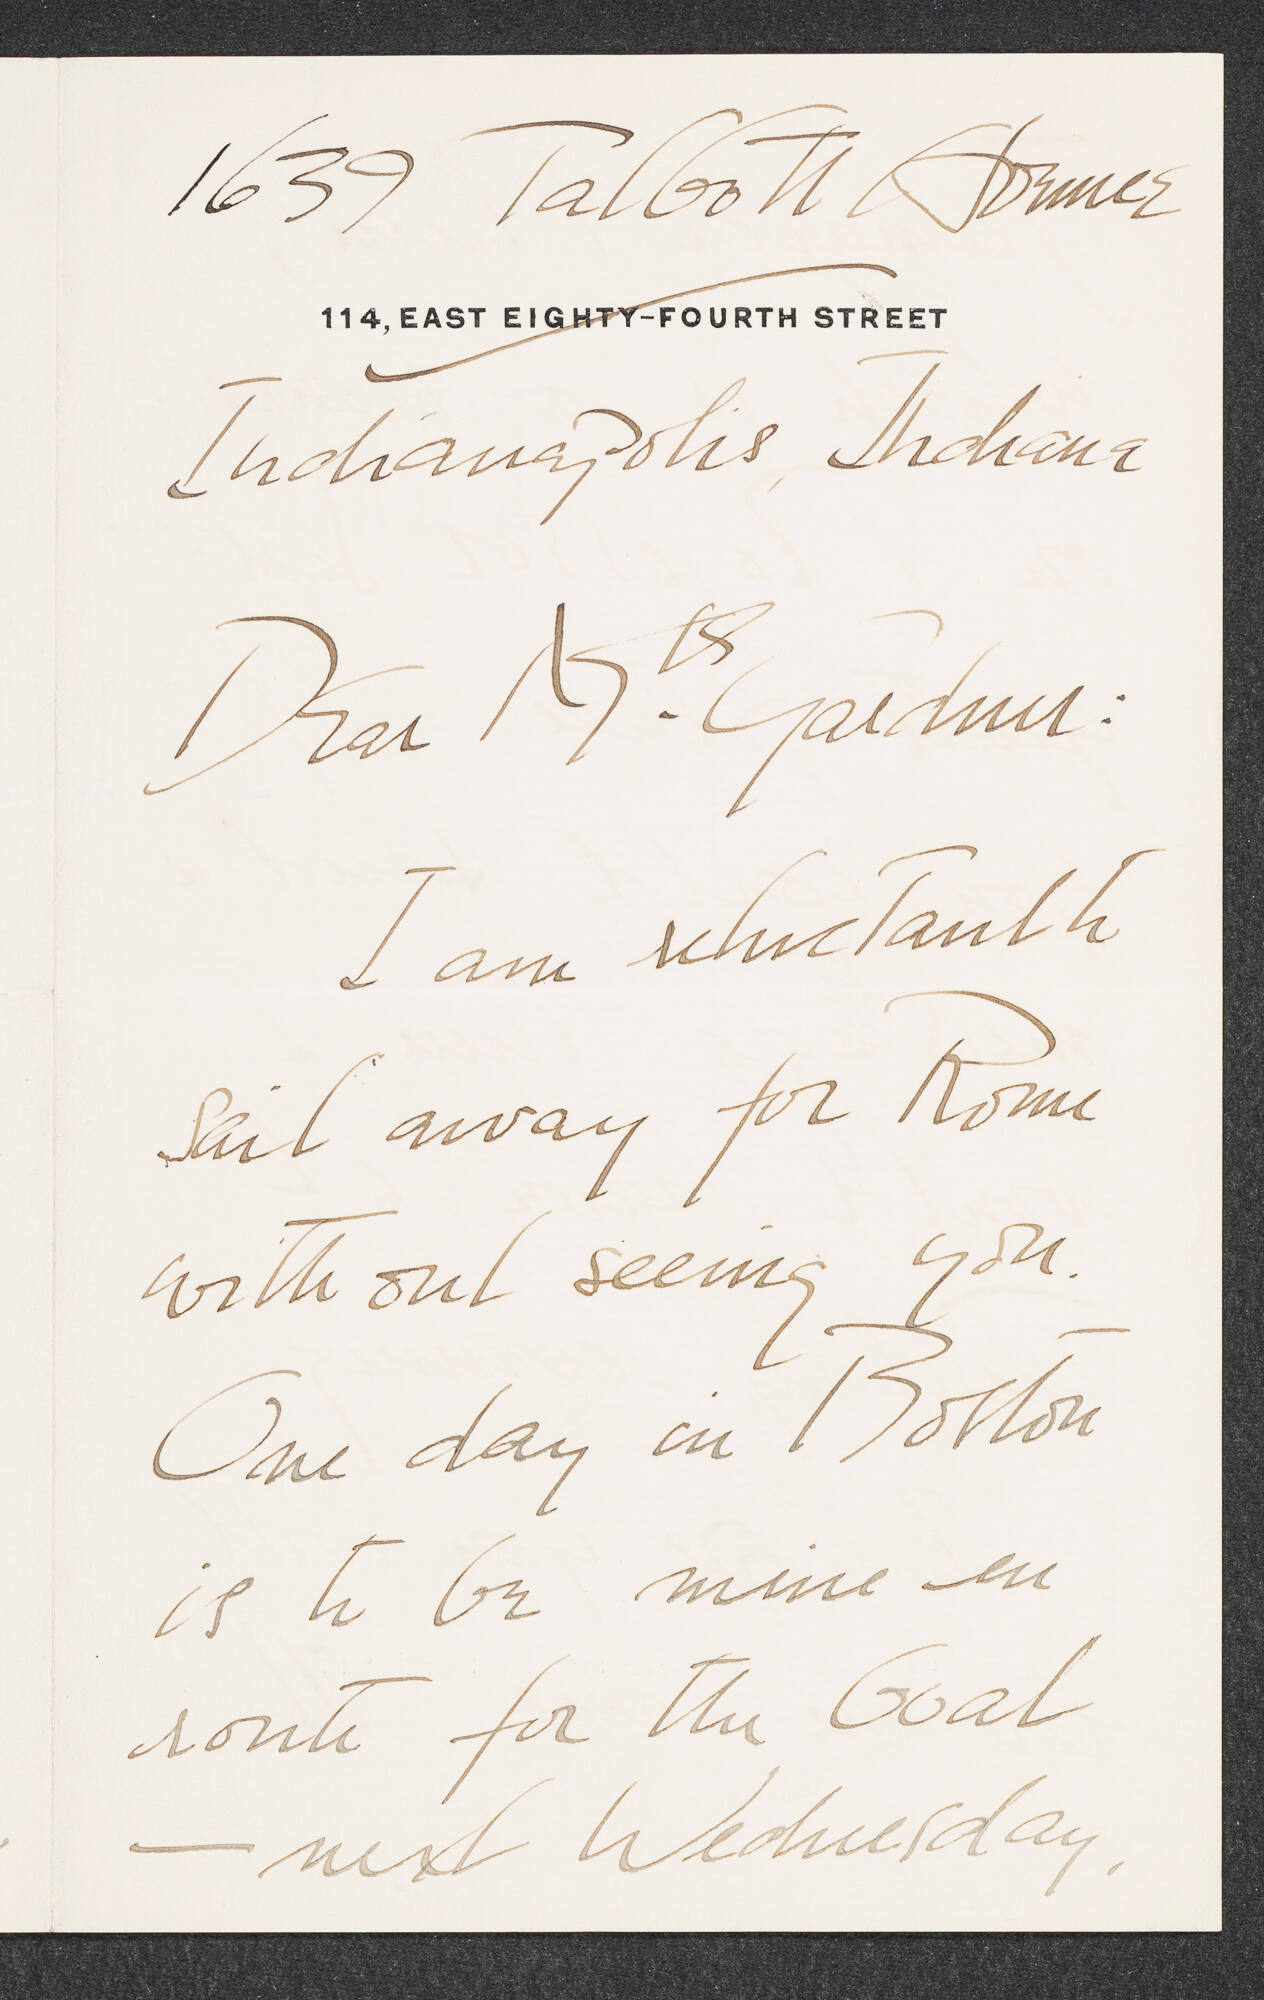 1639 Talbott Avenue
114, EAST EIGHTY-FOURTH STREET
Indianapolis, Indiana
Dear Mrs. Gardner:
I am reluctant to
sail away for Rome
without seeing you.
One day in Boston
is to be mine en
route for the boat
— next Wednesday.